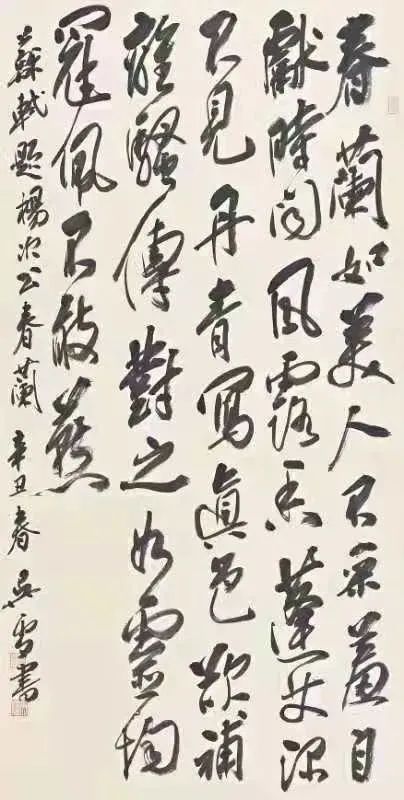 春蘭如美人不采羞自
獻時聞風露香蓬艾深
不見丹青寫眞色欲補
離騷傳對之如靈均
冠佩不敢燕
蘇軾題楊次公春蘭 辛丑春 吳雪書